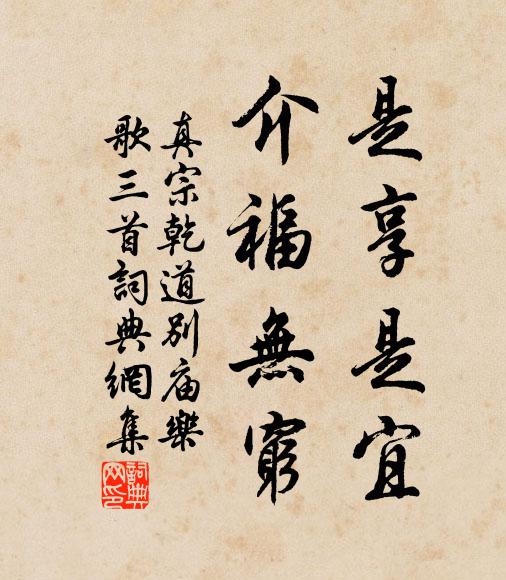 是享是宜
介福無窮
真宗乾道別庙樂
歌三首詞典網集
詞典
网印